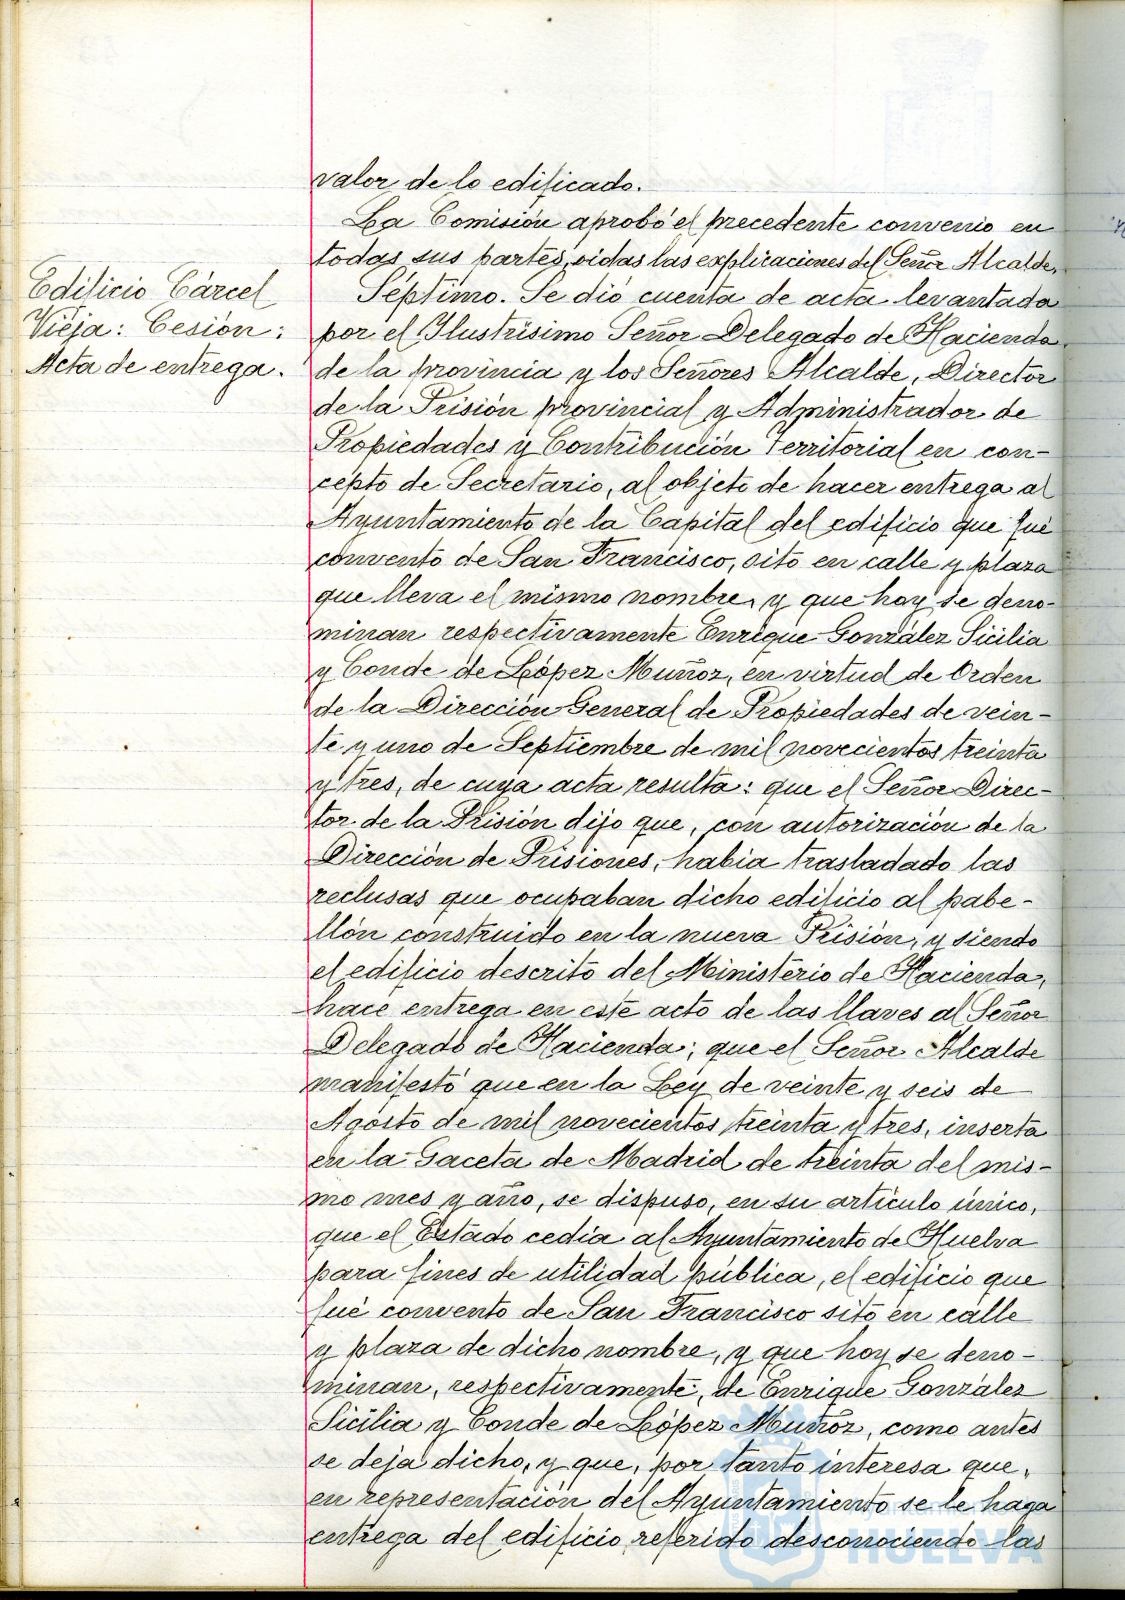 valor de lo edificado.
La Comisión aprobó el precedente convenio en
todas sus partes, oidas las explicaciones del Señor Alcalde.
Edificio Cárcel
Vieja: Cesión:
Acta de entrega.
Séptimo. Se dió cuenta de acta levantada
por el Ilustrísimo Señor Delegado de Hacienda
de la provincia y los Señores Alcalde, Director
de la Prisión provincial y Administrador de
Propiedades y Contribución Territorial en con-
cepto de Secretario, al objeto de hacer entrega al
Ayuntamiento de la Capital del edificio que fué
convento de San Francisco, sito en calle y plaza
que lleva el mismo nombre, y que hoy se deno-
minan respectivamente Enrique González Sicilia
y Conde de López Muñoz, en virtud de Orden
de la Dirección General de Propiedades de vein-
te y uno de Septiembre de mil novecientos treinta
y tres, de cuya acta resulta: que el Señor Direc-
tor de la Prisión dijo que, con autorización de la
Dirección de Prisiones, había trasladado las
reclusas que ocupaban dicho edificio al pabe-
llón construido en la nueva Prisión, y siendo
el edificio descrito del Ministerio de Hacienda,
hace entrega en este acto de las llaves al Señor
Delegado de Hacienda; que el Señor Alcalde
manifestó que en la Ley de veinte y seis de
Agosto de mil novecientos treinta y tres, inserta
en la Gaceta de Madrid de treinta del mis-
mo mes y año, se dispuso, en su artículo único,
que el Estado cedía al Ayuntamiento de Huelva
para fines de utilidad pública, el edificio que
fué convento de San Francisco sito en calle
y plaza de dicho nombre, y que hoy se deno-
minan, respectivamente, de Enrique González
Sicilia y Conde de López Muñoz, como antes
se deja dicho, y que, por tanto interesa que,
en representación del Ayuntamiento se le haga
entrega del edificio referido desconociendo las
HUELVA